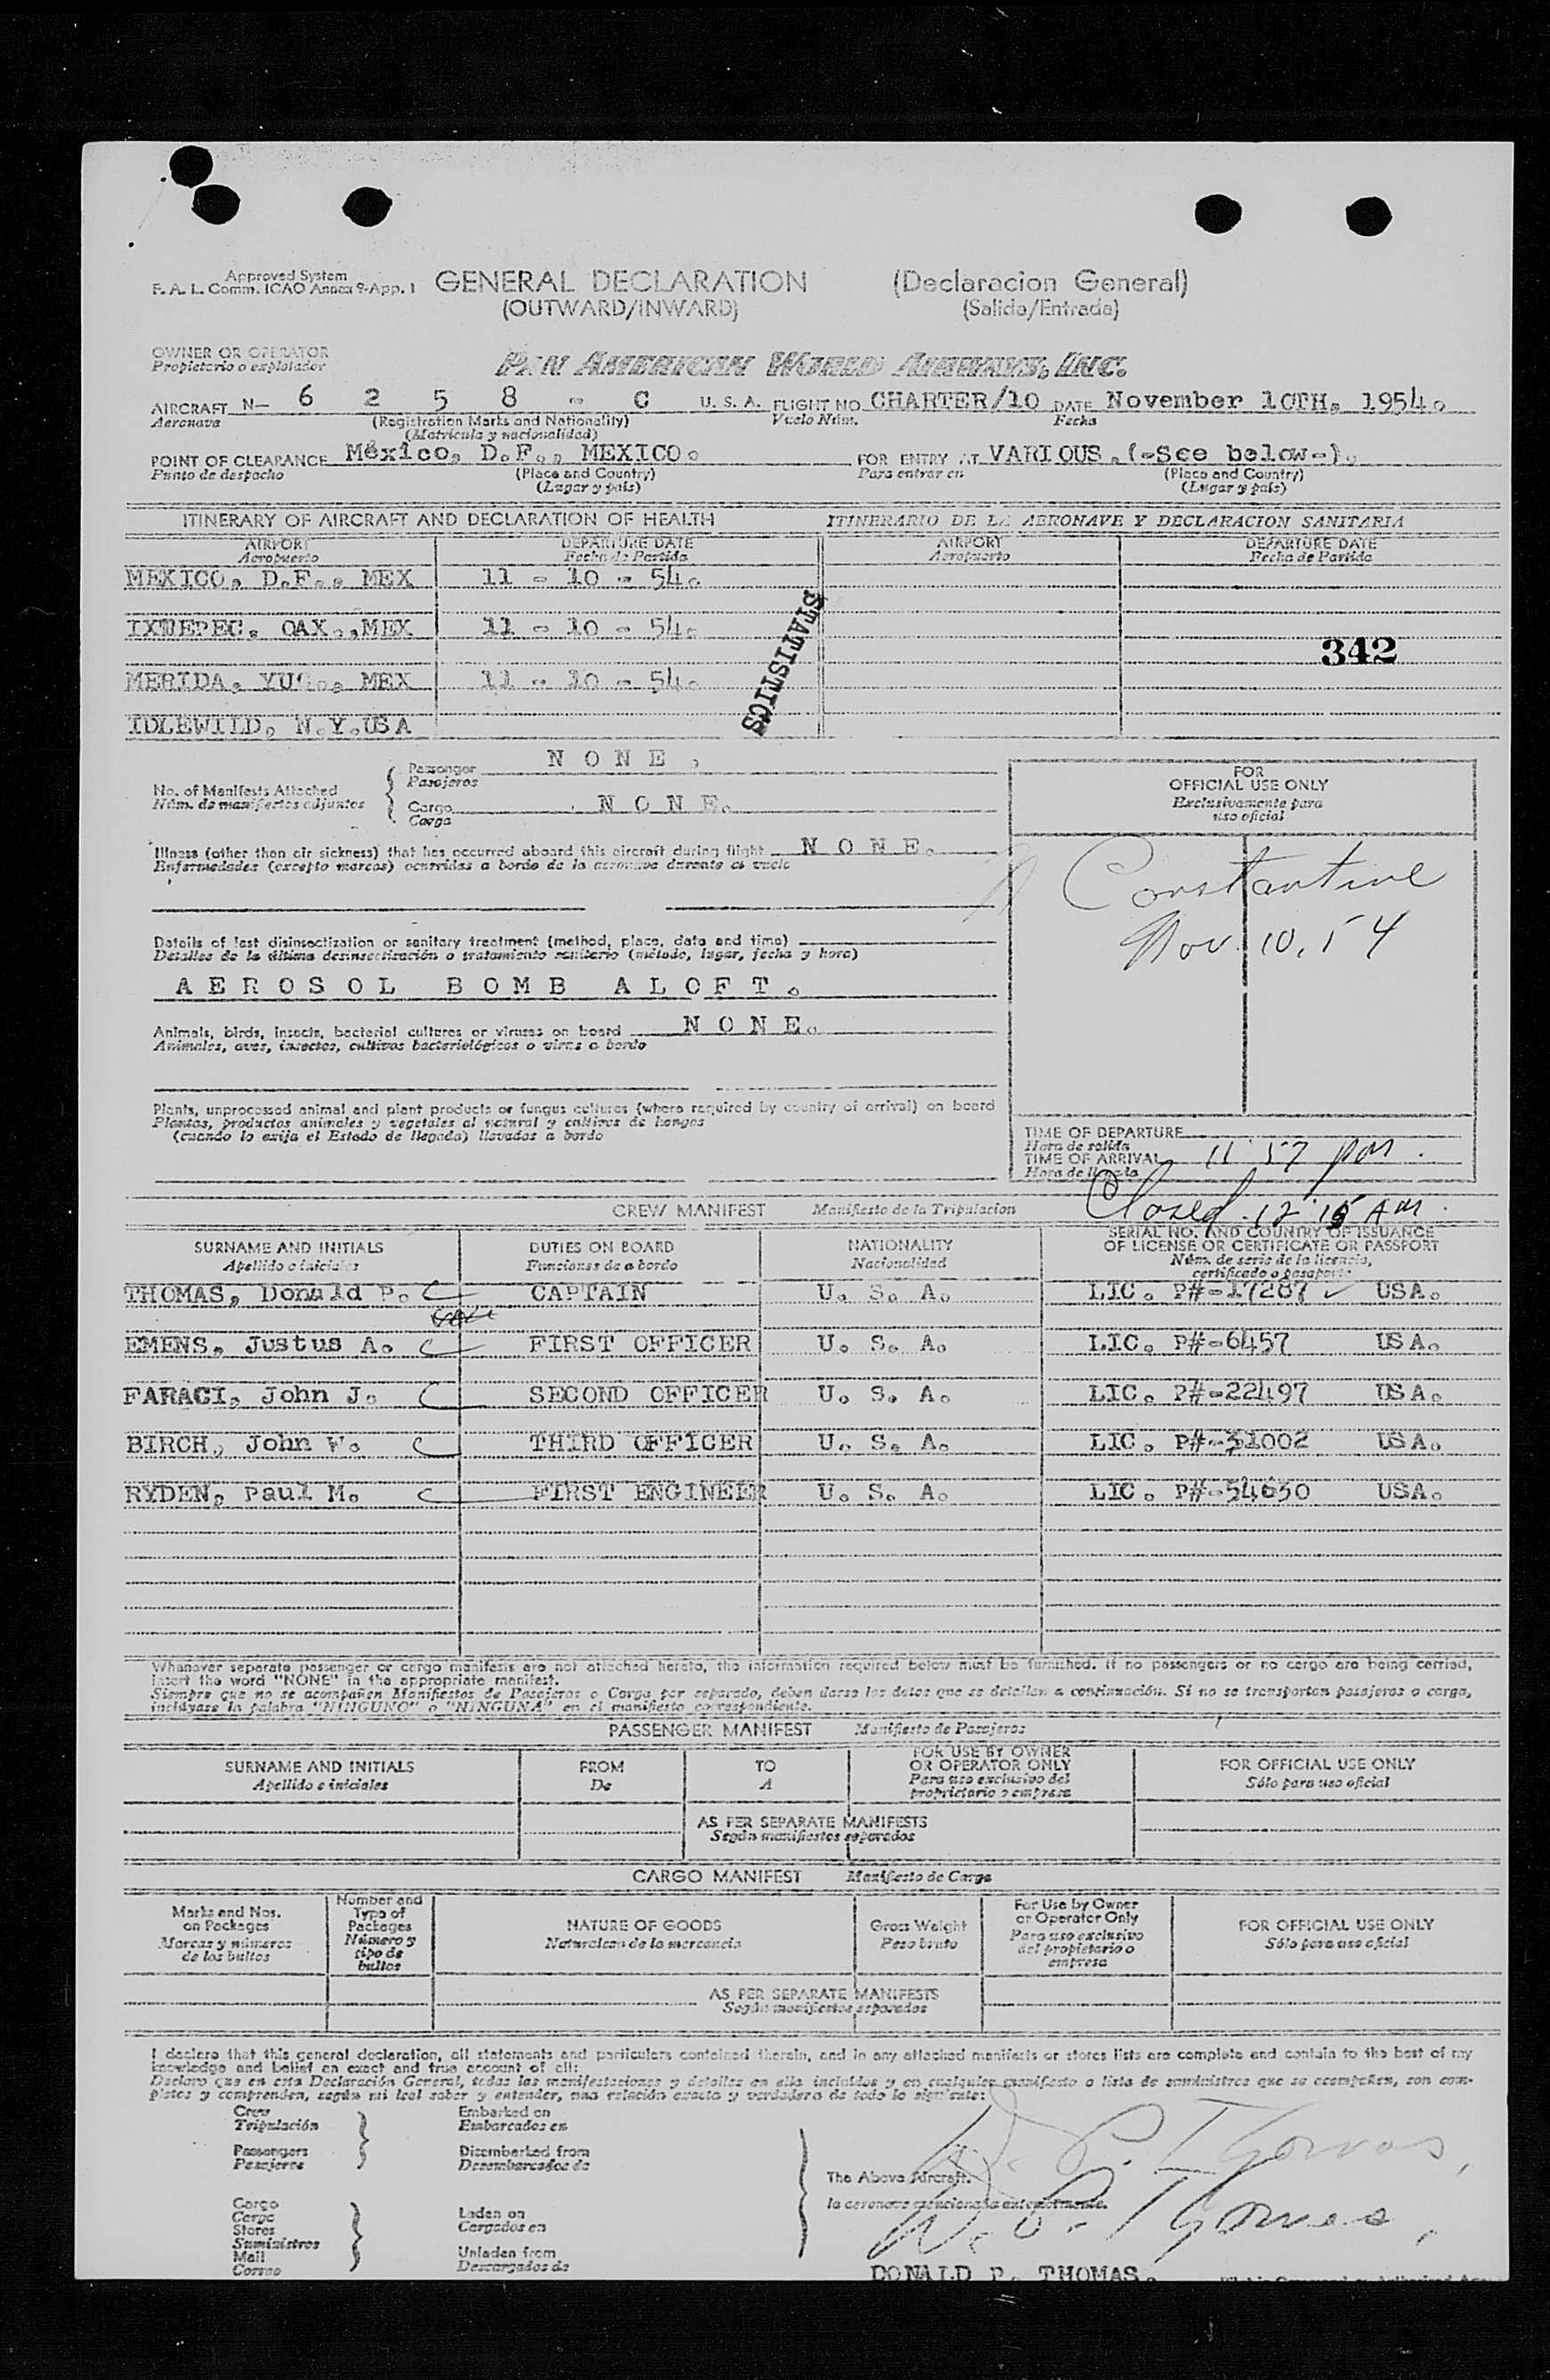 Approved System
F. A. L. Comm. ICAO Annex 9-App. 1
GENERAL DECLARATION (Declaracion General)
(OUTWARD/INWARD) (Salida/Entrada)
OWNER OR OPERATOR
Propietario o explotador
PAN AMERICAN WORLD AIRWAYS, INC.
AIRCRAFT N- 6 2 5 8 - C U. S. A. FLIGHT NO CHARTER/10 DATE November 10TH, 1954.
Aeronave (Registration Marks and Nationality) Vuelo Núm. Fecha
(Matrícula y nacionalidad)
POINT OF CLEARANCE México, D.F., MEXICO. FOR ENTRY AT VARIOUS.(-See below-).
Punto de despacho (Place and Country) Para entrar en (Place and Country)
(Lugar y país) (Lugar y país)
ITINERARY OF AIRCRAFT AND DECLARATION OF HEALTH ITINERARIO DE LA AERONAVE Y DECLARACION SANITARIA
AIRPORT DEPARTURE DATE AIRPORT DEPARTURE DATE
Aeropuerto Fecha de Partida Aeropuerto Fecha de Partida
MEXICO, D.F., MEX 11 - 10 - 54.
IXTEPEC, OAX.,MEX 11 - 10 - 54.
342
MERIDA, YUC., MEX 11 - 10 - 54.
STATISTICS
IDLEWILD, N.Y.USA
No. of Manifests Attached
Núm. de manifiestos adjuntos
Passenger N O N E .
Pasajeros
Cargo N O N E.
Carga
FOR
OFFICIAL USE ONLY
Exclusivamente para
uso oficial
Illness (other than air sickness) that has occurred aboard this aircraft during flight N O N E.
Enfermedades (excepto mareos) ocurridas a bordo de la aeronave durante el vuelo
Constantine
Nov. 10, 54
Details of last disinsectization or sanitary treatment (method, place, date and time)
Detalles de la última desinsectización o tratamiento sanitario (método, lugar, fecha y hora)
A E R O S O L B O M B A L O F T .
Animals, birds, insects, bacterial cultures or viruses on board N O N E.
Animales, aves, insectos, cultivos bacteriológicos o virus a bordo
Plants, unprocessed animal and plant products or fungus cultures (where required by country of arrival) on board
Plantas, productos animales y vegetales al natural y cultivos de hongos
(cuando lo exija el Estado de llegada) llevados a bordo
TIME OF DEPARTURE
Hora de salida
TIME OF ARRIVAL 11 57 pm.
Hora de llegada
Closed 12 15 AM.
CREW MANIFEST Manifiesto de la Tripulacion
SURNAME AND INITIALS DUTIES ON BOARD NATIONALITY SERIAL NO. AND COUNTRY OF ISSUANCE
OF LICENSE OR CERTIFICATE OR PASSPORT
Apellido e iniciales Funciones de a bordo Nacionalidad Núm. de serie de la licencia,
certificado o pasaporte
THOMAS, Donald P. C CAPTAIN U. S. A. LIC. P#-17287 ✓ USA.
EMENS, Justus A. C FIRST OFFICER U. S. A. LIC. P#-6457 USA.
FARACI, John J. C SECOND OFFICER U. S. A. LIC. P#-22497 USA.
BIRCH, John W. C THIRD OFFICER U. S. A. LIC. P#-31002 USA.
RYDEN, Paul M. C FIRST ENGINEER U. S. A. LIC. P#-54630 USA.
Whenever separate passenger or cargo manifests are not attached hereto, the information required below must be furnished. If no passengers or no cargo are being carried,
insert the word "NONE" in the appropriate manifest.
Siempre que no se acompañen Manifiestos de Pasajeros o Carga por separado, deben darse los datos que se detallan a continuación. Si no se transportan pasajeros o carga,
inclúyase la palabra "NINGUNO" o "NINGUNA" en el manifiesto correspondiente.
PASSENGER MANIFEST Manifiesto de Pasajeros
SURNAME AND INITIALS FROM TO FOR USE BY OWNER
OR OPERATOR ONLY FOR OFFICIAL USE ONLY
Apellido e iniciales De A Para uso exclusivo del
propietario o empresa Sólo para uso oficial
AS PER SEPARATE MANIFESTS
Según manifiestos separados
CARGO MANIFEST Manifiesto de Carga
Marks and Nos.
on Packages
Marcas y números
de los bultos
Number and
Type of
Packages
Número y
tipo de
bultos
NATURE OF GOODS
Naturaleza de la mercancia
Gross Weight
Peso bruto
For Use by Owner
or Operator Only
Para uso exclusivo
del propietario o
empresa
FOR OFFICIAL USE ONLY
Sólo para uso oficial
AS PER SEPARATE MANIFESTS
Según manifiestos separados
I declare that this general declaration, all statements and particulars contained therein, and in any attached manifests or stores lists are complete and contain to the best of my
knowledge and belief an exact and true account of all:
Declaro que en esta Declaración General, todas las manifestaciones y detalles en ella incluídos y en cualquier manifiesto o lista de suministros que se acompañen, son com-
pletos y comprenden, según mi leal saber y entender, una relación exacta y verdadera de todo lo siguiente:
Crew
Tripulación
Passengers
Pasajeros
Embarked on
Embarcados en
Disembarked from
Desembarcados de
Cargo
Carga
Stores
Suministros
Mail
Correo
Laden on
Cargados en
Unladen from
Descargados de
The Above Aircraft.
la aeronave mencionada anteriormente.
D. P. Thomas,
D. P. Thomas,
DONALD P. THOMAS.